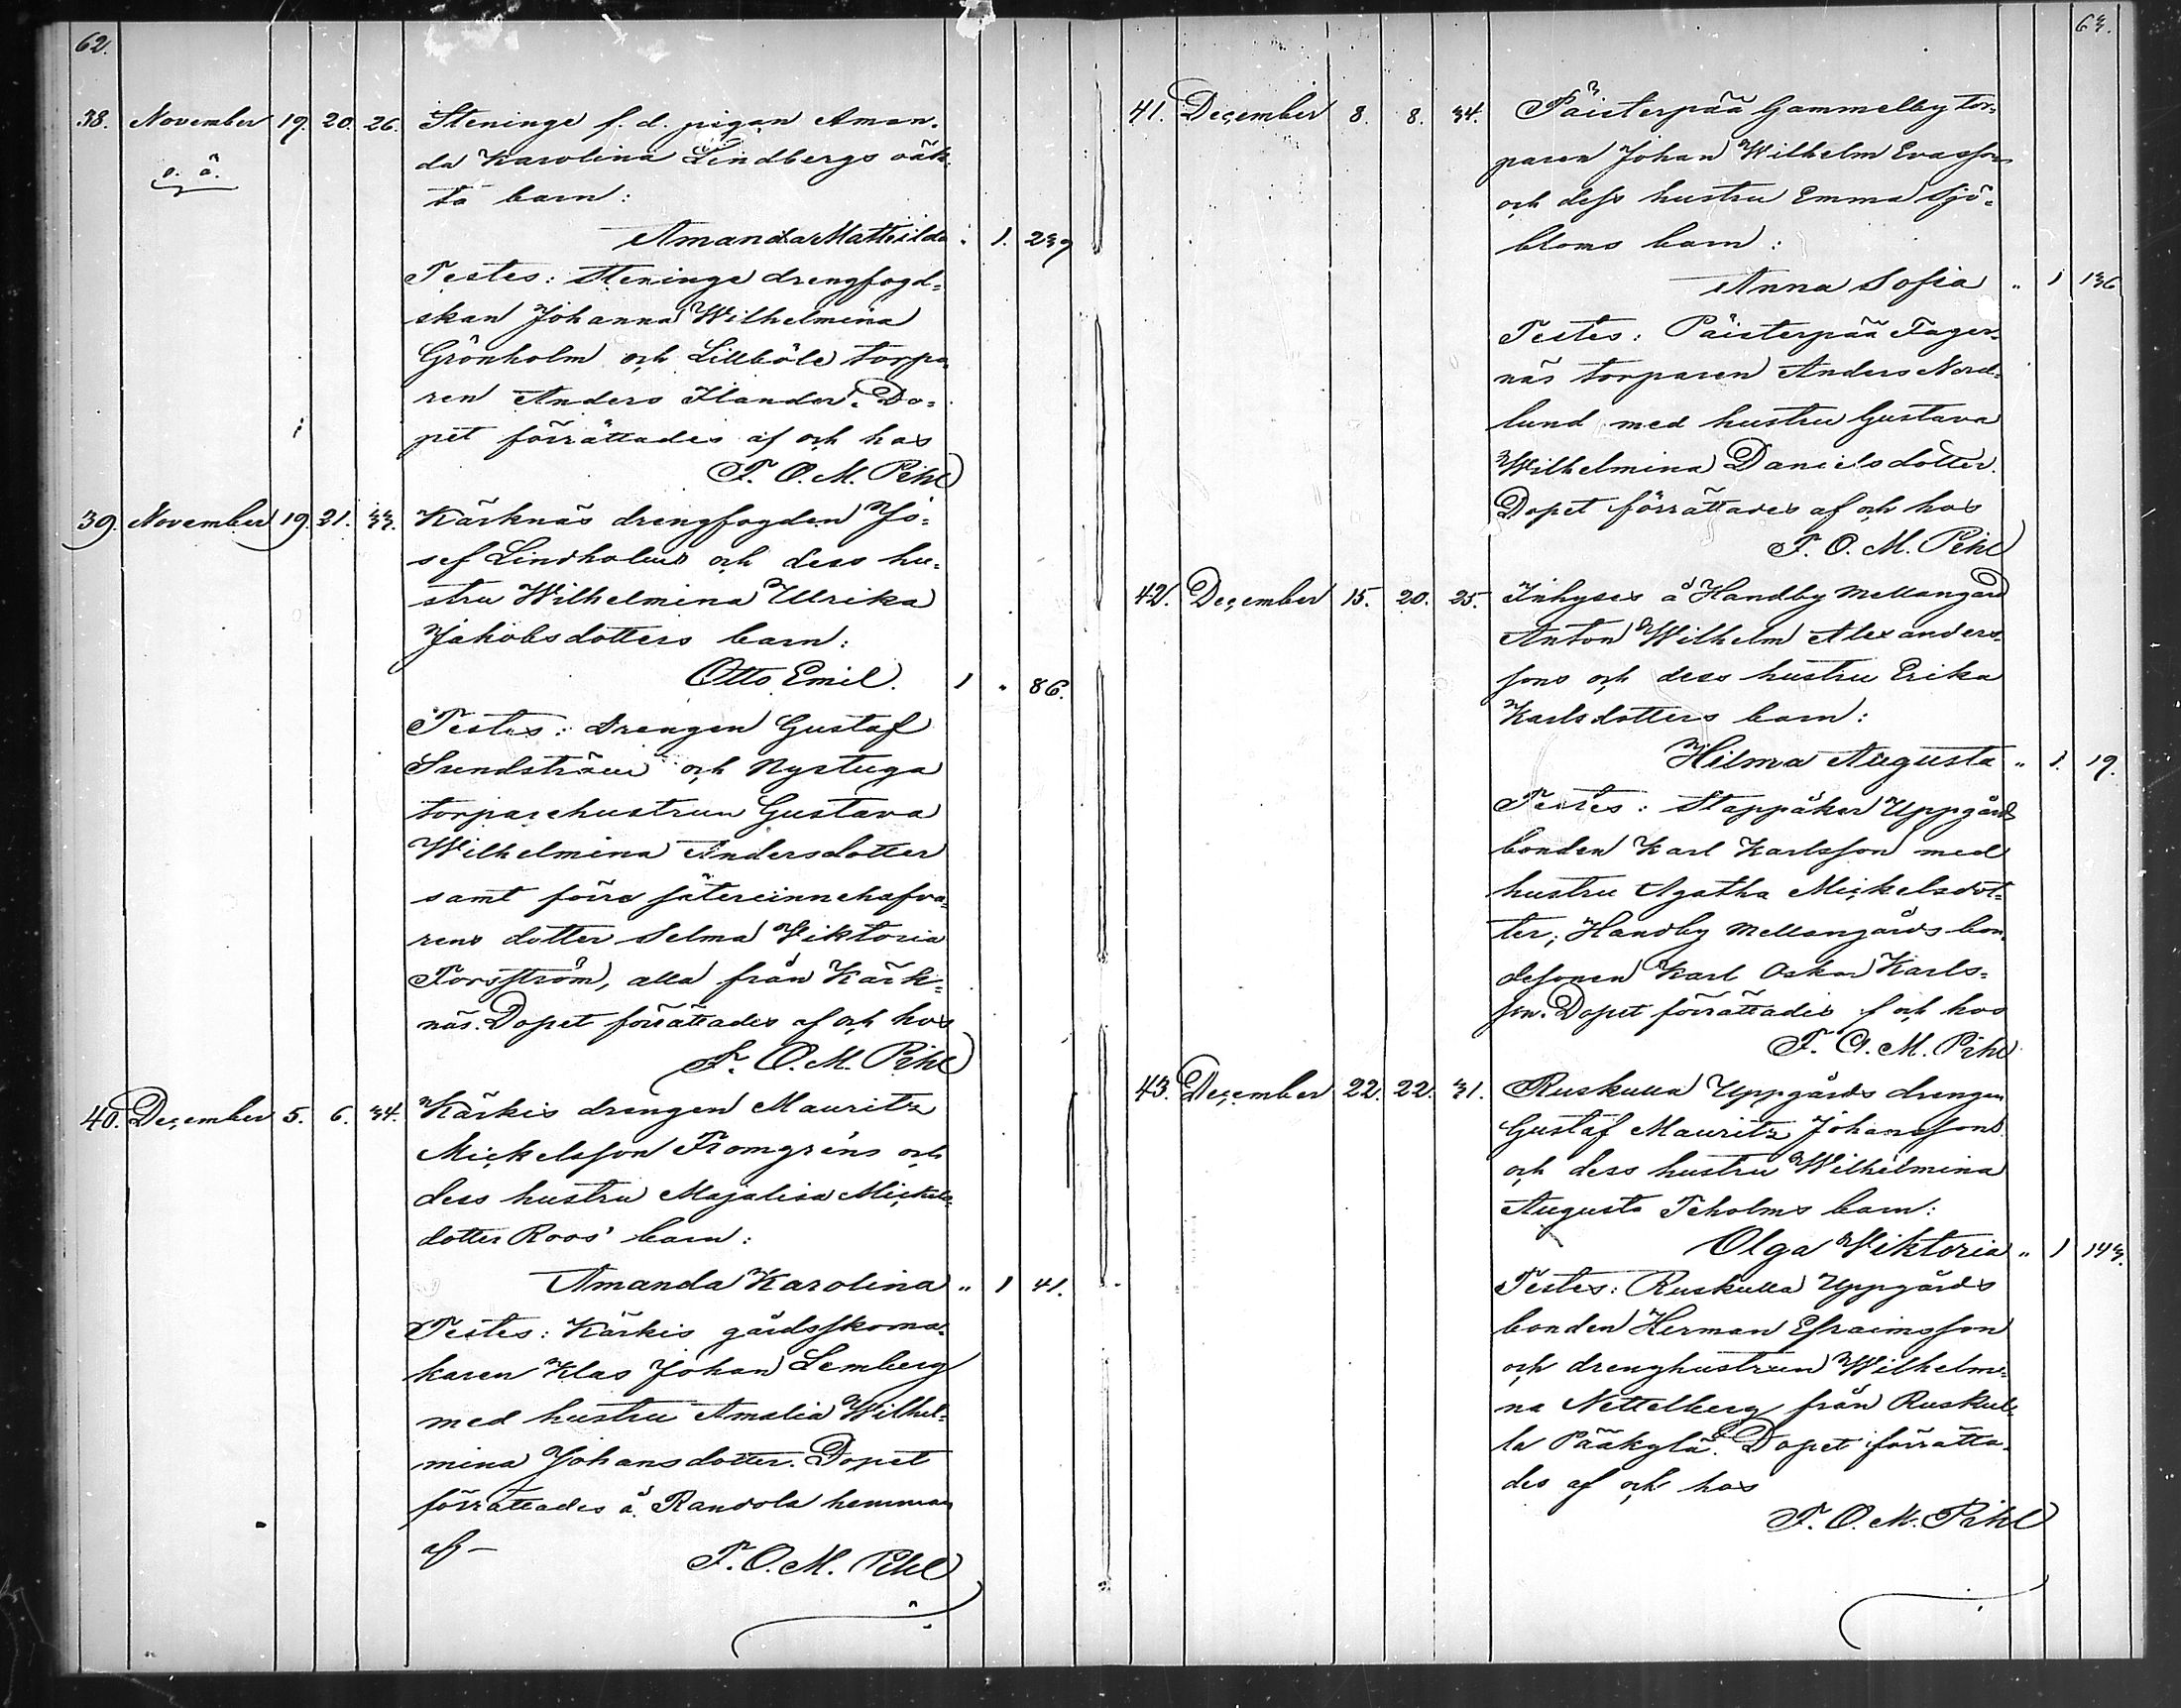 62.
38. November 19. 20. 26. Steninge f. d. pigan Aman-
da Karolina Lindbergs oäk-
o. ä.
ta barn:
Amanda Mathilda " 1. 239
Testes: Steninge drengfogd-
skan Johanna Wilhelmina
Grönholm och Lillböle torpa-
ren Anders Ilander. Do-
pet förrättades af och hos
F. O. M. Pihl
39. November 19. 21. 33. Kärknäs drengfogden Jo-
sef Lindholms och dess hu-
stru Wilhelmina Ulrika
Jakobsdotters barn:
Otto Emil. 1 " 86.
Testes: drengen Gustaf
Sundström och Nystuga
torparehustrun Gustava
Wilhelmina Andersdotter
samt förra säterinnehafva-
rens dotter Selma Viktoria
Forsström, alla från Kärk-
näs. Dopet förrättades af och hos
F. O. M. Pihl
40. December 5. 6. 34. Kärkis drengen Mauritz
Mickelsson Fromgréns och
dess hustru Majalisa Mickels-
dotter Roos' barn:
Amanda Karolina " 1 41.
Testes: Kärkis gårdsskoma-
karen Klas Johan Lemberg
med hustru Amalia Wilhel-
mina Johansdotter. Dopet
förrättades å Randola hemman
af –
F. O. M. Pihl
63.
41. December 8. 8. 34. Päisterpää Gammelby tor-
paren Johan Wilhelm Evasson
och dess hustru Emma Sjö-
bloms barn:
Anna Sofia " 1 136
Testes: Päisterpää Fager-
näs torparen Anders Nord-
lund med hustru Gustava
Wilhelmina Danielsdotter.
Dopet förrättades af och hos
F. O. M. Pihl
42. December 15. 20. 25. Inhyses å Handby Mellangård
Anton Wilhelm Alexanders-
sons och dess hustru Erika
Karlsdotters barn:
Hilma Augusta " 1. 19.
Testes: Stappåker Uppgårds
bonden Karl Karlsson med
hustru Agatha Mickelsdot-
ter, Handby Mellangårds bon-
desonen Karl Oskar Karls-
son. Dopet förrättades af och hos
F. O. M. Pihl
43. December 22. 22. 31. Ruskulla Uppgårds drengen
Gustaf Mauritz Johanssons
och dess hustru Wilhelmina
Augusta Teholms barn:
Olga Viktoria " 1 143.
Testes: Ruskulla Uppgårds
bonden Herman Efraimsson
och drenghustrun Wilhelmi-
na Nettelberg från Ruskul-
la Pääkylä. Dopet förrätta-
des af och hos
F. O. M. Pihl